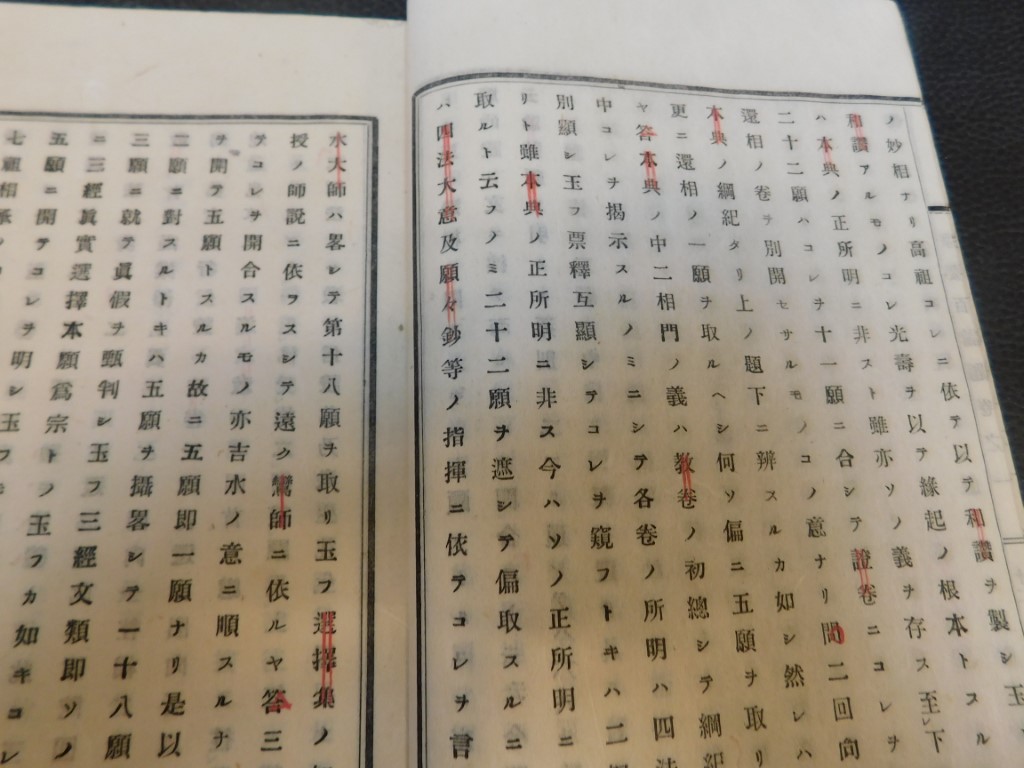 ノ妙相ナリ高祖コレニ依テ以テ和讃ヲ製シ玉
和讃アルモノコレ光壽ヲ以テ緣起ノ根本トスル
ハ本典ノ正所明ニ非スト雖亦ソノ義ヲ存ス至下
二十二願ハコレヲ十一願ニ合シテ證卷ニコレヲ
還相ノ卷ヲ別開セサルモノコノ意ナリ問二回向
本典ノ綱紀タリ上ノ題下ニ辨スルカ如シ然レハ
更ニ還相ノ一願ヲ取ルヘシ何ソ偏ニ五願ヲ取リ
ヤ答本典ノ中二相門ノ義ハ教卷ノ初總シテ綱紀
中コレヲ揭示スルノミニシテ各卷ノ所明ハ四法
別顯シ玉フ票釋互顯シテコレヲ窺フトキハ二
リト雖本典ノ正所明ニ非ス今ハソノ正所明ニ
取ルト云フノミ二十二願ヲ遮シテ偏取スルニ
ハ四法大意及願々鈔等ノ指揮ニ依テコレヲ言
水大師ハ畧シテ第十八願ヲ取リ玉フ選擇集ノ
授ノ師說ニ依ラスシテ遠ク鸞師ニ依ルヤ答三
テコレヲ開合スルモノ亦吉水ノ意ニ順スルナ
ヲ開テ五願トスルカ故ニ五願卽一願ナリ是以
二願ニ對スルトキハ五願ヲ攝畧シテ一十八願
三願ニ就テ眞假ヲ甄判シ玉フ三經文類卽ソノ
ニ三經眞實選擇本願爲宗トノ玉フカ如キコレ
五願ニ開テコレヲ明シ玉フ
七祖相承ノ